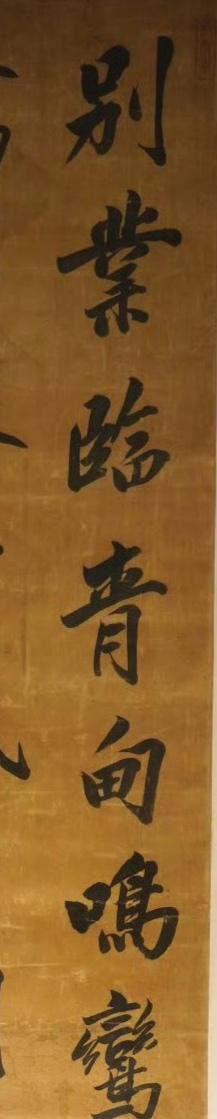 別業臨青甸鳴鑾